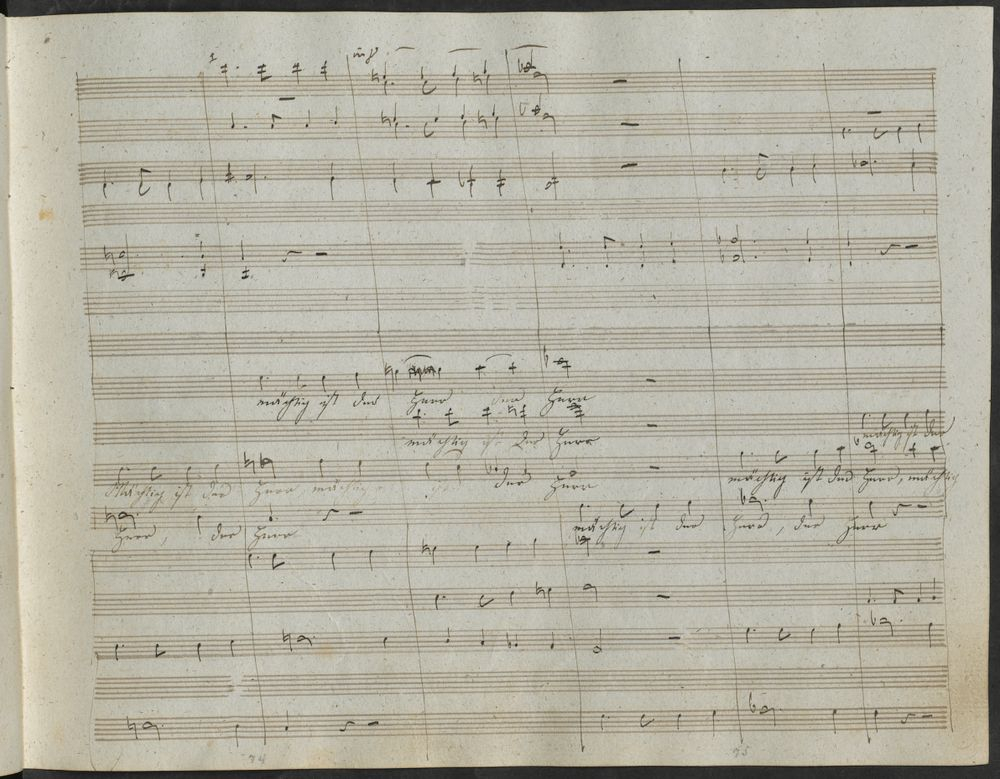 mächtig ist der Herr der Herr
mächtig ist der Herr
mächtig ist der
Mächtig ist der Herr mächtig ist der Herr mächtig ist der Herr, mächtig
Herr, der Herr mächtig ist der Herr, der Herr
74 75